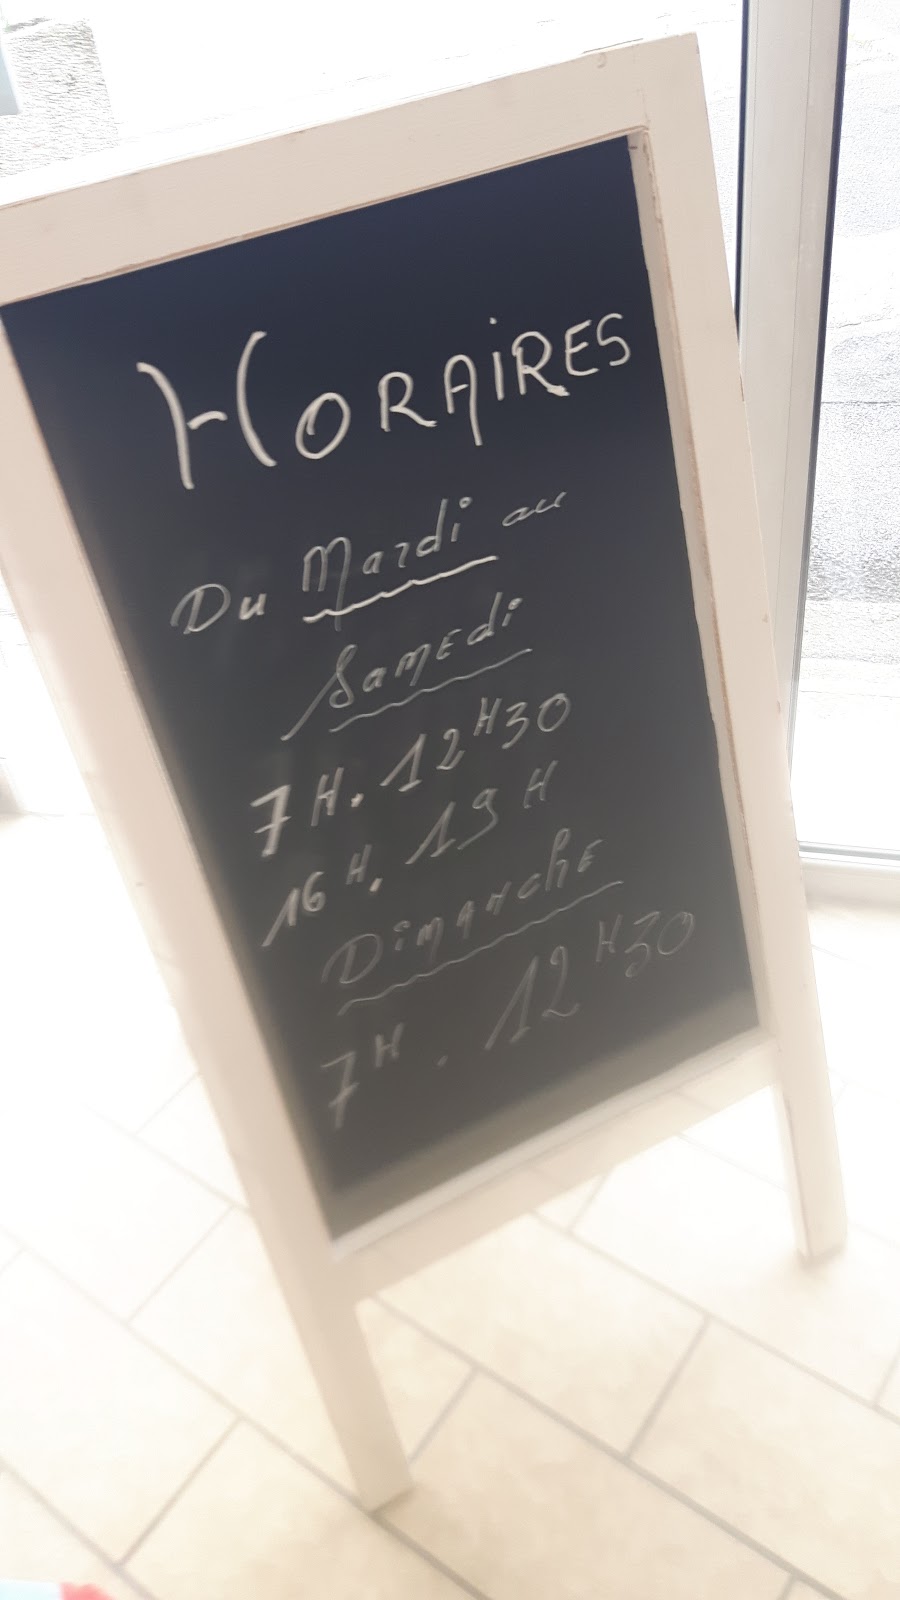 HORAIRES
Du Mardi au
Samedi
7H. 12H30
16H. 19H
Dimanche
7H. 12H30